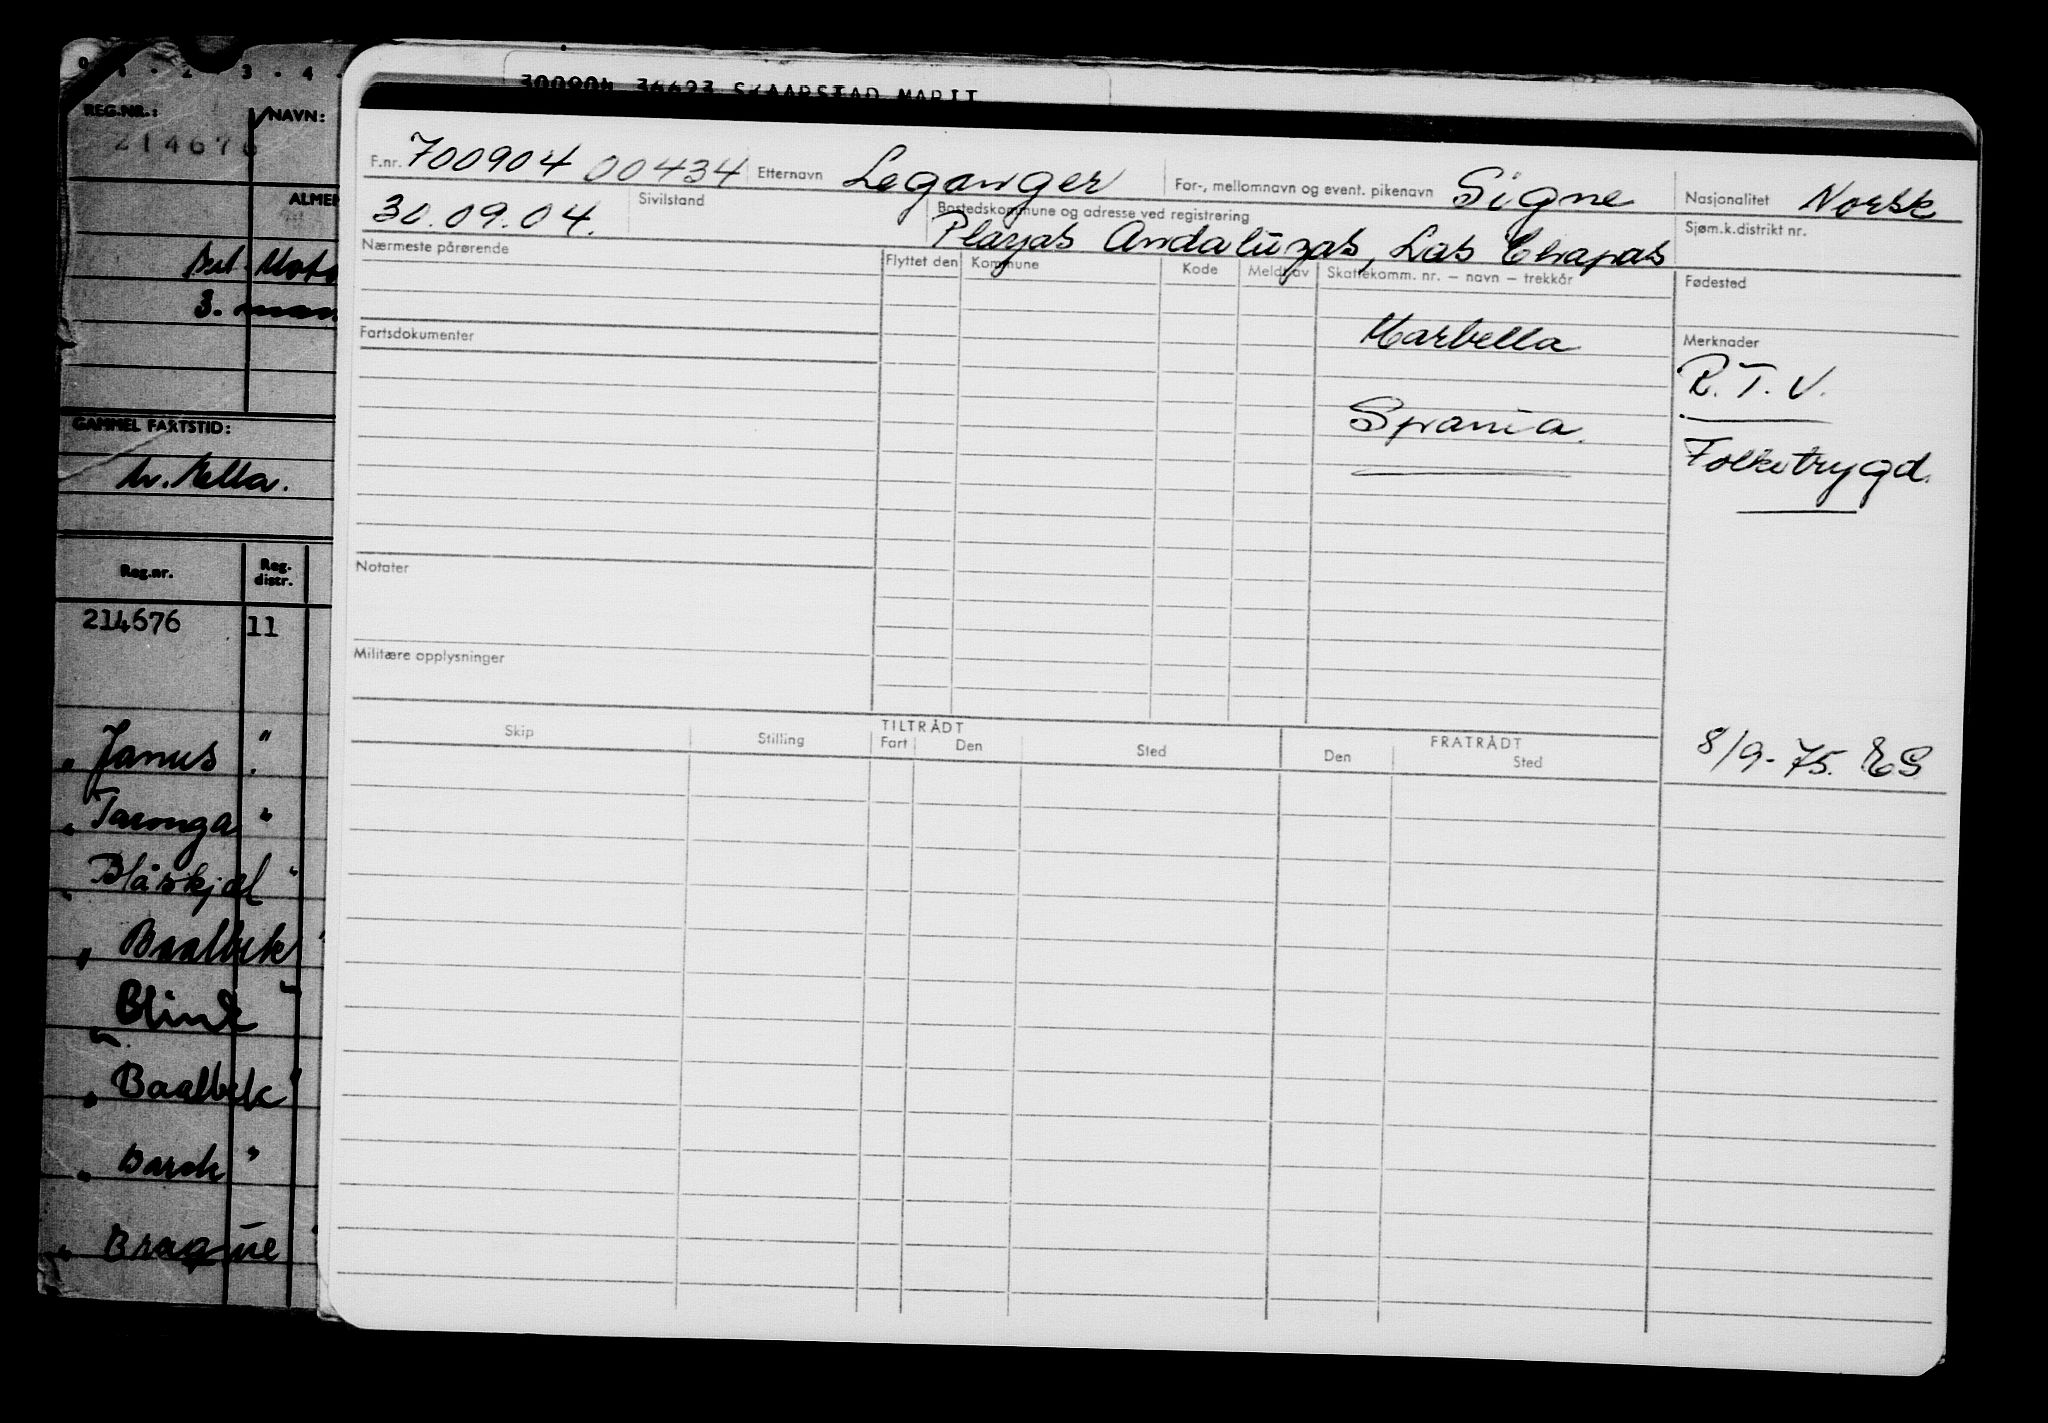 300904 36693 SKAARSTAD MARIT
9 1 . 2 . 3 . 4 .
REG.NR.: NAVN:
214676
3. man
GAMMEL FARTSTID:
Reg.nr. Reg. distr.
214676 11
" Janus "
" Taronga "
" Blåskjæl "
" Baalbek "
" Blink "
" Baalbek "
" Barok "
" Braque "
F.nr. 700904 00434 Etternavn Leganger For-, mellomnavn og event. pikenavn Signe Nasjonalitet Norsk
30.09.04. Sivilstand Bostedskommune og adresse ved registrering Sjøm.k.distrikt nr.
Playas Andaluzas, Las Chapas
Nærmeste pårørende Flyttet den Kommune Kode Meldt av Skattekomm. nr. – navn – trekkår Fødested
Marbella
Fartsdokumenter Merknader
R.T.V.
Spania.
Folketrygd.
Notater
Militære opplysninger
8/9-75. ES
TILTRÅDT FRATRÅDT
Skip Stilling Fart Den Sted Den Sted